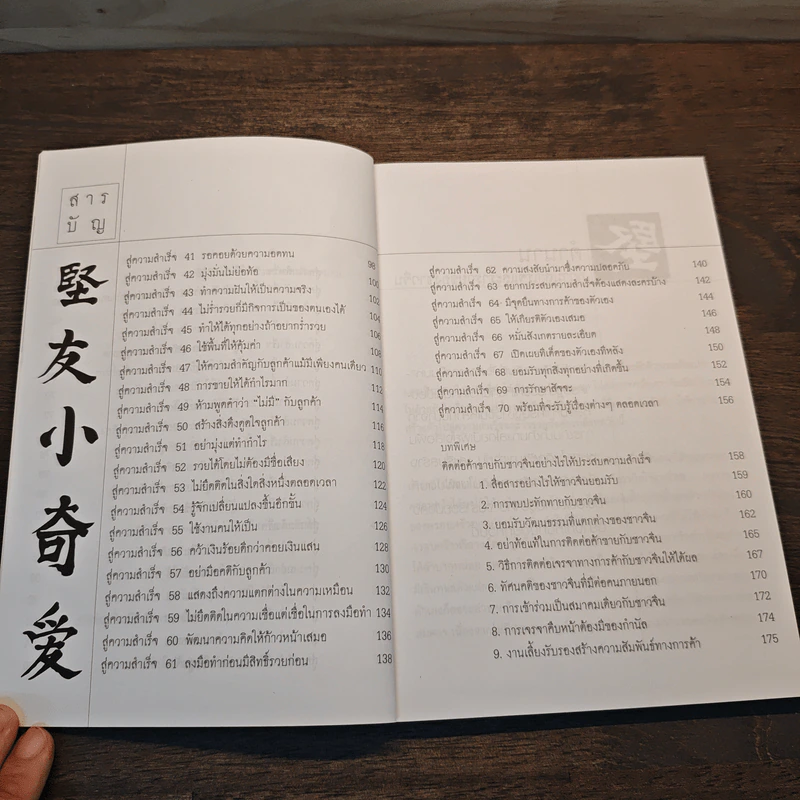 สาร
บัญ
堅
友
小
奇
爱
สู่ความสำเร็จ 41 รอคอยด้วยความอดทน 98
สู่ความสำเร็จ 42 มุ่งมั่นไม่ย่อท้อ 100
สู่ความสำเร็จ 43 ทำความฝันให้เป็นความจริง 102
สู่ความสำเร็จ 44 ไม่ร่ำรวยก็มีกิจการเป็นของตนเองได้ 104
สู่ความสำเร็จ 45 ทำให้ได้ทุกอย่างถ้าอยากร่ำรวย 106
สู่ความสำเร็จ 46 ใช้พื้นที่ให้คุ้มค่า 108
สู่ความสำเร็จ 47 ให้ความสำคัญกับลูกค้าแม้มีเพียงคนเดียว 110
สู่ความสำเร็จ 48 การขายให้ได้กำไรมาก 112
สู่ความสำเร็จ 49 ห้ามพูดคำว่า "ไม่มี" กับลูกค้า 114
สู่ความสำเร็จ 50 สร้างสิ่งดึงดูดใจลูกค้า 116
สู่ความสำเร็จ 51 อย่ามุ่งแต่ทำกำไร 118
สู่ความสำเร็จ 52 รวยได้โดยไม่ต้องมีชื่อเสียง 120
สู่ความสำเร็จ 53 ไม่ยึดติดในสิ่งใดสิ่งหนึ่งตลอดเวลา 122
สู่ความสำเร็จ 54 รู้จักเปลี่ยนแปลงขึ้นอีกขั้น 124
สู่ความสำเร็จ 55 ใช้งานคนให้เป็น 126
สู่ความสำเร็จ 56 คว้าเงินร้อยดีกว่าคอยเงินแสน 128
สู่ความสำเร็จ 57 อย่ามีอคติกับลูกค้า 130
สู่ความสำเร็จ 58 แสดงถึงความแตกต่างในความเหมือน 132
สู่ความสำเร็จ 59 ไม่ยึดติดในความเชื่อแต่เชื่อในการลงมือทำ 134
สู่ความสำเร็จ 60 พัฒนาความคิดให้ก้าวหน้าเสมอ 136
สู่ความสำเร็จ 61 ลงมือทำก่อนมีสิทธิ์รวยก่อน 138
สู่ความสำเร็จ 62 ความสงสัยนำมาซึ่งความปลอดภัย 140
สู่ความสำเร็จ 63 อยากประสบความสำเร็จต้องแสดงละครบ้าง 142
สู่ความสำเร็จ 64 มีจุดยืนทางการค้าของตัวเอง 144
สู่ความสำเร็จ 65 ให้เกียรติตัวเองเสมอ 146
สู่ความสำเร็จ 66 หมั่นสังเกตรายละเอียด 148
สู่ความสำเร็จ 67 เปิดเผยทีเด็ดของตัวเองทีหลัง 150
สู่ความสำเร็จ 68 ยอมรับทุกสิ่งทุกอย่างที่เกิดขึ้น 152
สู่ความสำเร็จ 69 การรักษาสัจจะ 154
สู่ความสำเร็จ 70 พร้อมที่จะรับรู้เรื่องต่างๆ ตลอดเวลา 156
บทพิเศษ
ติดต่อค้าขายกับชาวจีนอย่างไรให้ประสบความสำเร็จ 158
1. สื่อสารอย่างไรให้ชาวจีนยอมรับ 159
2. การพบปะทักทายกับชาวจีน 160
3. ยอมรับวัฒนธรรมที่แตกต่างของชาวจีน 162
4. อย่าท้อแท้ในการติดต่อค้าขายกับชาวจีน 165
5. วิธีการติดต่อเจรจาทางการค้ากับชาวจีนให้ได้ผล 167
6. ทัศนคติของชาวจีนที่มีต่อคนภายนอก 170
7. การเข้าร่วมเป็นสมาคมเดียวกับชาวจีน 172
8. การเจรจาคืบหน้าต้องมีของกำนัล 174
9. งานเลี้ยงรับรองสร้างความสัมพันธ์ทางการค้า 175